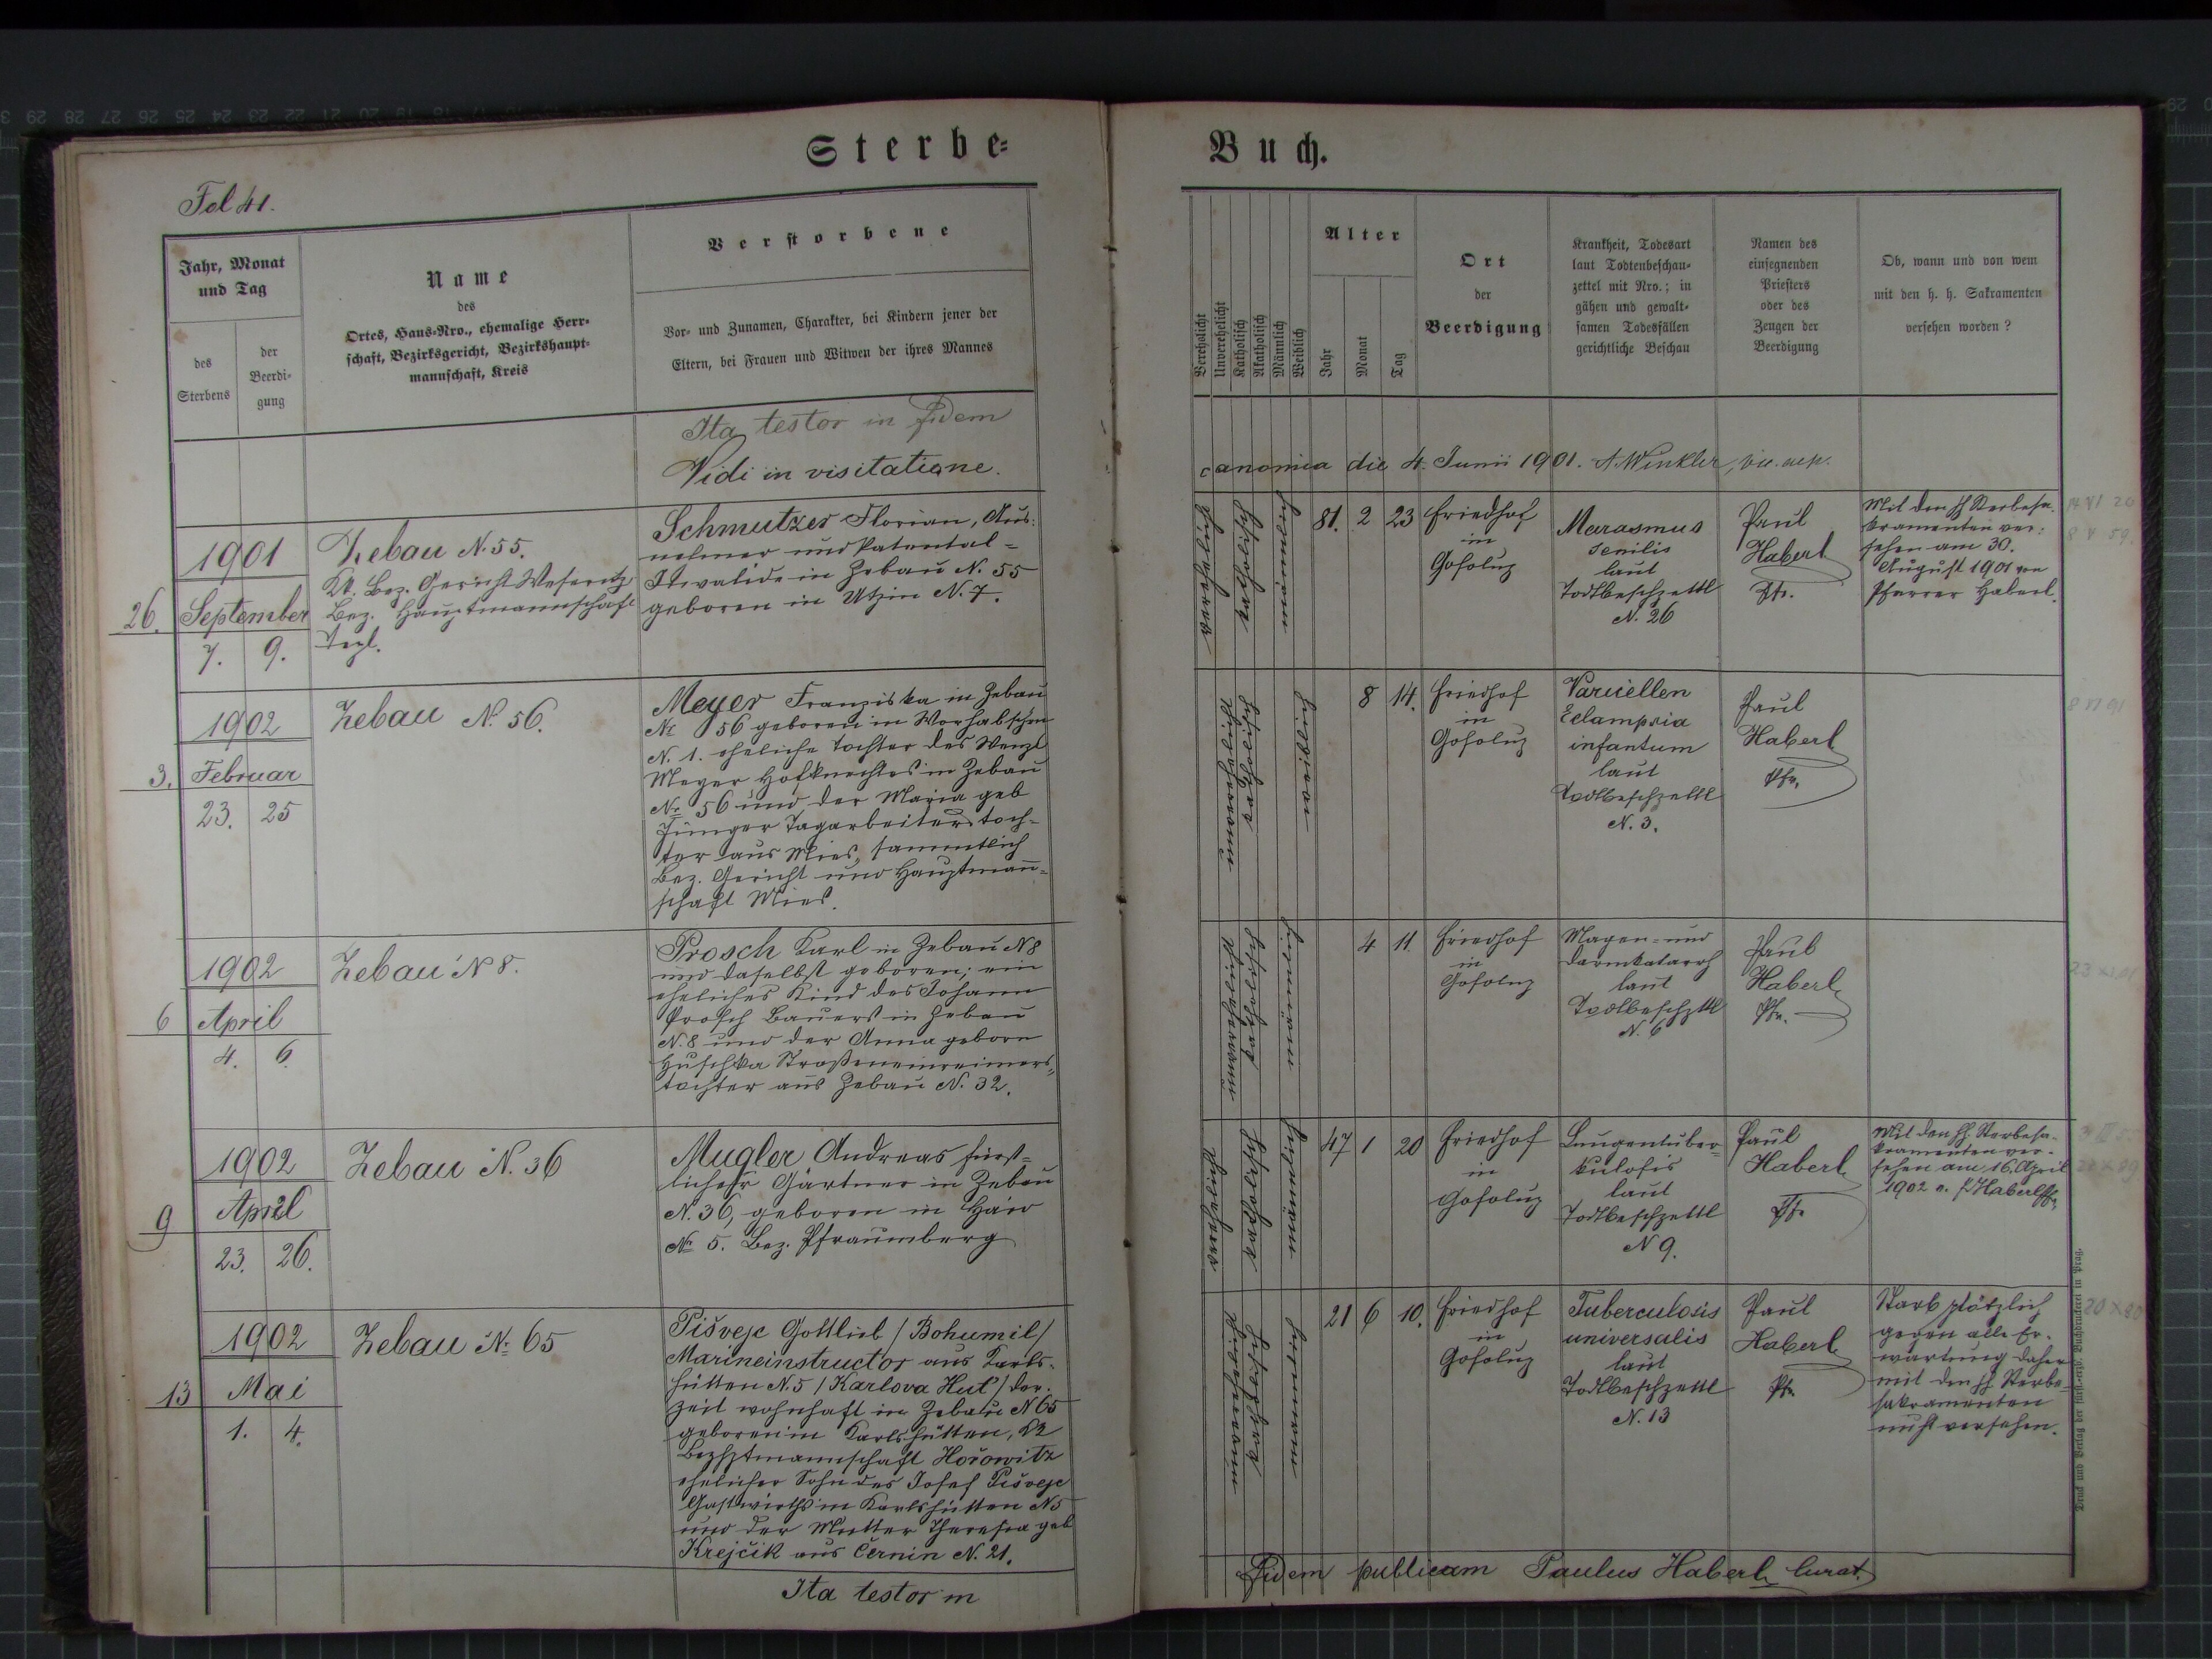 Sterbe-
Buch.
Fol 41.
Jahr, Monat
und Tag
des
Sterbens
der
Beerdi-
gung
Name
des
Ortes, Haus-Nro., ehemalige Herr-
schaft, Bezirksgericht, Bezirkshaupt-
mannschaft, Kreis
Verstorbene
Vor- und Zunamen, Charakter, bei Kindern jener der
Eltern, bei Frauen und Witwen der ihres Mannes
Verehelicht
Unverehelicht
Katholisch
Akatholisch
Männlich
Weiblich
Alter
Jahr
Monat
Tag
Ort
der
Beerdigung
Krankheit, Todesart
laut Todtenbeschau-
zettel mit Nro.; in
gähen und gewalt-
samen Todesfällen
gerichtliche Beschau
Namen des
einsegnenden
Priesters
oder des
Zeugen der
Beerdigung
Ob, wann und von wem
mit den h. h. Sakramenten
versehen worden?
Ita testor in fidem
Vidi in visitatione.
canonica die 4. Junii 1901. A. Winkler,
26.
1901
September
7. 9.
Zebau N. 55.
Bez. Gericht Weseritz
Bez. Hauptmannschaft
Tepl.
Schmutzer Florian, Aus-
nehmer und Patental-
Invalide in Zebau N. 55
geboren in Utzin N. 7.
verehelicht
katholisch
männlich
81. 2 23
Friedhof
in
Gosolup
Marasmus
senilis
laut
Todtbeschzettl
N. 26
Paul
Haberl
Pfr.
Mit den hh Sterbesa-
kramenten ver-
sehen am 30.
August 1901 von
Pfarrer Haberl.
3.
1902
Februar
23. 25
Zebau N. 56.
Meyer Franziska in Zebau
Nr 56 geboren in Worhabschen
N. 1. eheliche Tochter des Wenzl
Meyer Hofknechtes in Zebau
Nr 56 und der Maria geb
Junger Tagarbeiterstoch-
ter aus Mies, sammtlich
Bez. Gericht und Hauptmann-
schaft Mies.
unverehelicht
katholisch
weiblich
8 14.
Friedhof
in
Gosolup
Varicellen
Eclampsia
infantum
laut
Todtbeschzettl
N. 3.
Paul
Haberl
Pfr.
6
1902
April
4. 6.
Zebau N 8.
Prosch Karl in Zebau N 8
und daselbst geboren; ein
eheliches Kind des Johann
Prosch Bauers in Zebau
N. 8 und der Anna geborn
Huschka Straßeneinreimers-
tochter aus Zebau N. 32.
unverehelicht
katholisch
männlich
4 11.
Friedhof
in
Gosolup
Magen- und
Darmkatarrh
laut
Todtbeschzttl
N. 6
Paul
Haberl
Pfr.
9
1902
April
23. 26.
Zebau N. 36
Mugler Andreas fürst-
licher Gärtner in Zebau
N. 36, geboren in Haid
Nr 5. Bez. Pfraumberg
verehelicht
katholisch
männlich
47 1 20
Friedhof
in
Gosolup
Lungentuber-
kulosis
laut
Todtbeschzettl
N 9.
Paul
Haberl
Pfr.
Mit den hh. Sterbesa-
kramenten ver-
sehen am 16. April
1902 v. P Haberl Pfr.
13
1902
Mai
1. 4.
Zebau Nr 65
Pišveje Gottlieb / Bohumil /
Marineinstructor aus Karls-
hütten N. 5 / Karlova Huť / der-
zeit wohnhaft in Zebau N 65
geboren in Karlshütten,
Bezhptmannschaft Hořowitz
ehelicher Sohn des Josef Pišveje
Gastwirths in Karlshütten N 5
und der Mutter Theresia geb
Krejčik aus Černin N. 21.
unverehelicht
katholisch
männlich
21 6 10.
Friedhof
in
Gosolup
Tuberculosis
universalis
laut
Todtbeschzettl
N. 13
Paul
Haberl
Pfr
Starb plötzlich
gegen alle Er-
wartung daher
mit den hh Sterbe-
sakramenten
nicht versehen.
Ita testor in
fidem publicam Paulus Haberl Curat.
Druck und Verlag der fürst.-erzb. Buchdruckerei in Prag.